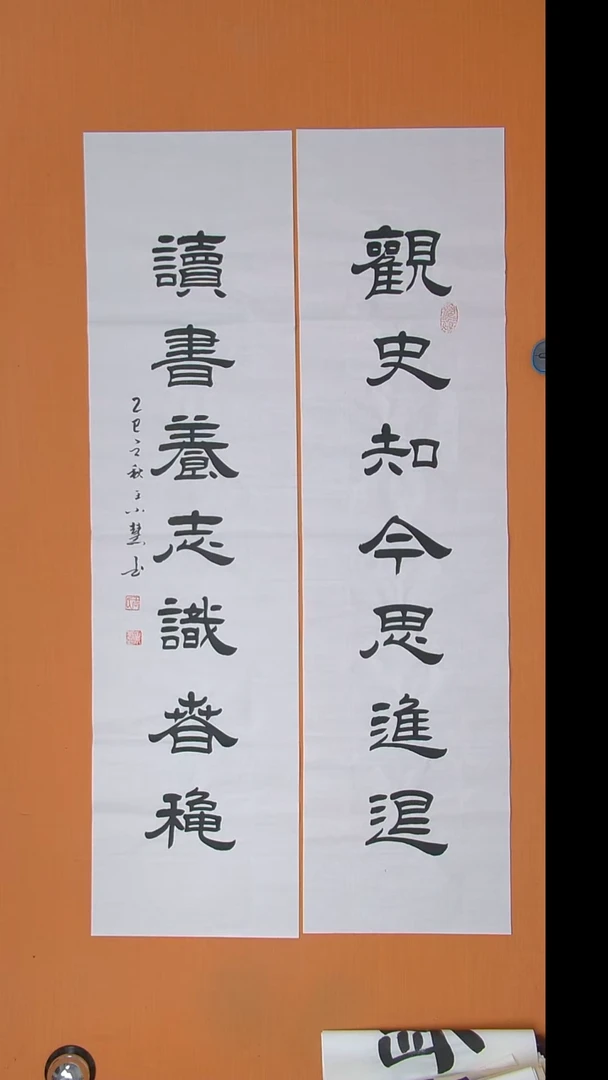 觀史知今思進退
讀書養志識春穐
乙巳立秋王小慧书